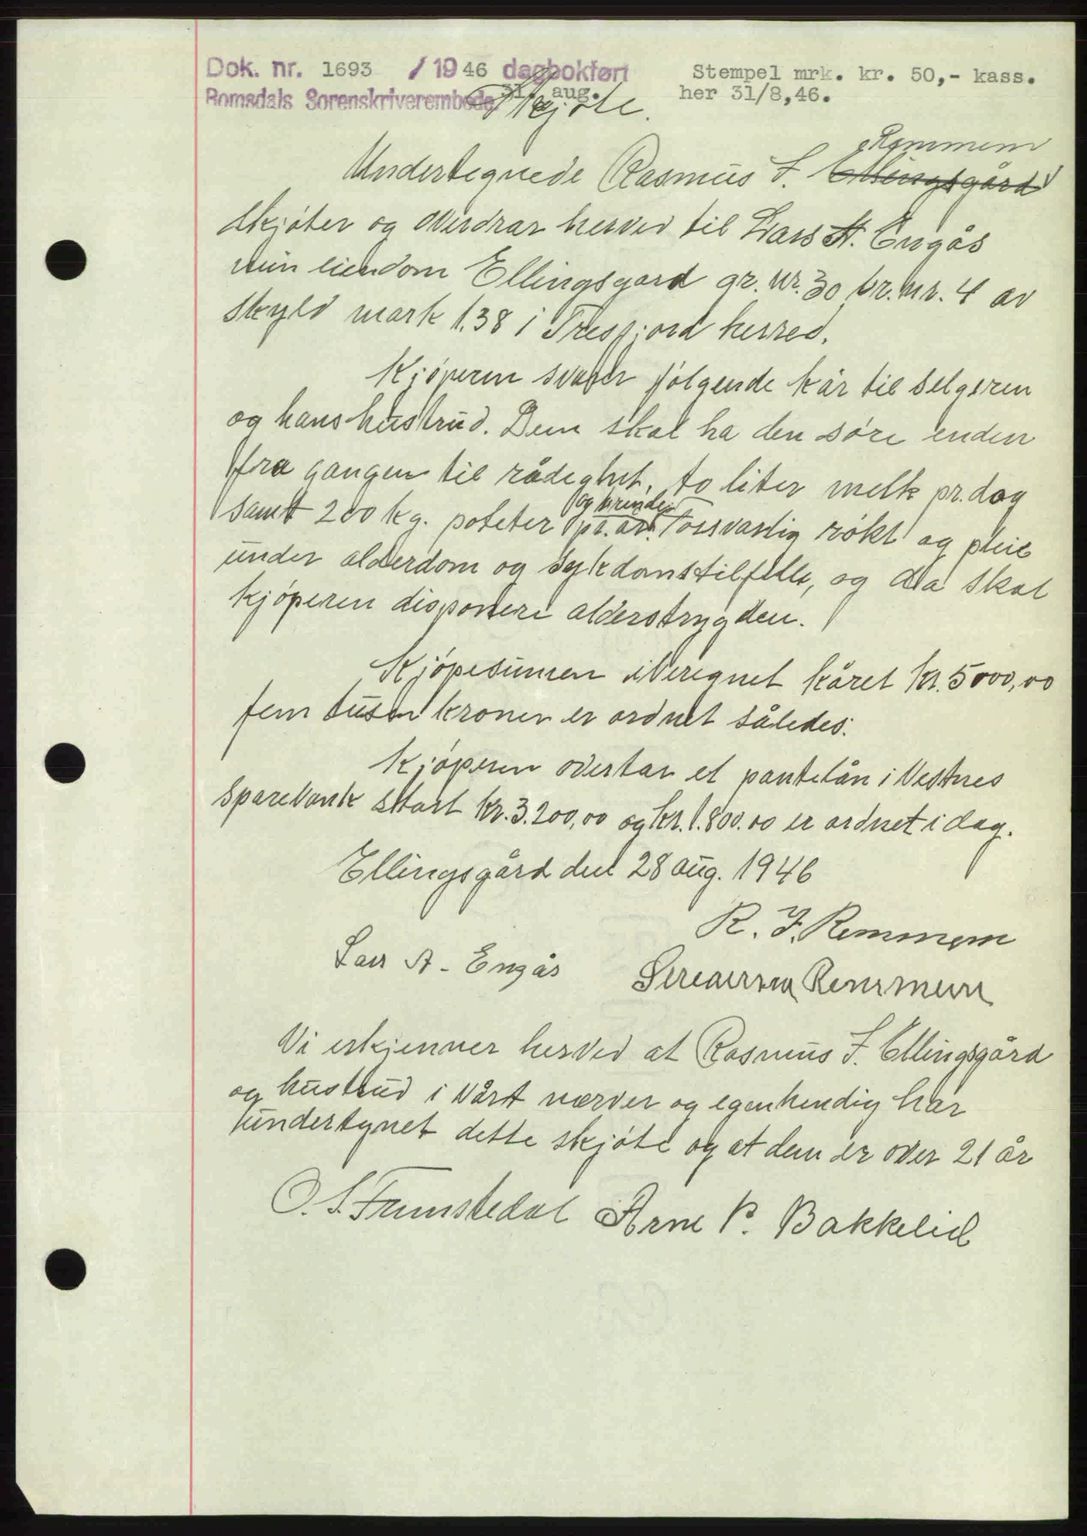 Dok. nr. 1693 / 1946 dagbokført Stempel mrk. kr. 50,- kass.
Romsdals Sorenskriverembede 31. aug. her 31/8,46.
Skjøte.
Remmem
Undertegnede Rasmus F. Ellingsgård
skjøter og overdrar herved til Lars A. Engås
min eiendom Ellingsgard gr. nr. 30 br. nr. 4 av
skyld mark 1.38 i Tresfjord herred.
Kjøperen svarer følgende kår til selgeren
og hans hustrud. Dem skal ha den søre enden
fra gangen til rådeghet, to liter melk pr. dag
og brende
samt 200 kg. poteter pr. år. Forsvarlig røkt og pleie
under alderdom og sykdomstilfelle, og da skal
kjøperen disponere alderstrygden.
Kjøpesumen iberegnet kåret kr. 5000,00
fem tusen kroner er ordnet således:
Kjøperen overtar et pantelån i Vestnes
Sparebank stort kr. 3.200,00 og kr. 1.800.00 er ordnet i dag.
Ellingsgård den 28 aug. 1946
R. F. Remmem
Lars A. Engås Remmem
Vi erkjenner herved at Rasmus F. Ellingsgård
og hustrud i vårt nærver og egenhendig har
undertynet dette skjøte og at dem er over 21 år
O. S. Arne P. Bakkelid